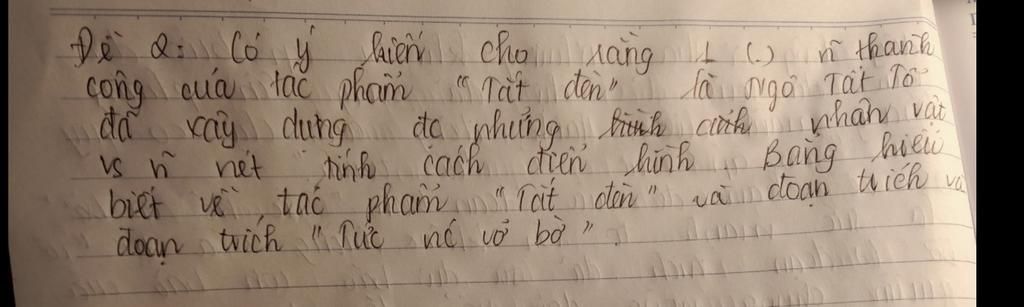 Đề 2: Có ý kiến cho rằng 1 (.) n~ thành
công của tác phẩm "Tắt đèn" là Ngô Tất Tố
đã xây dựng đc những nhân vật
vs n~ nét tính cách điển hình. Bằng hiểu
biết về tác phẩm "Tắt đèn" và đoạn trích và
đoạn trích "Tức nc vỡ bờ".